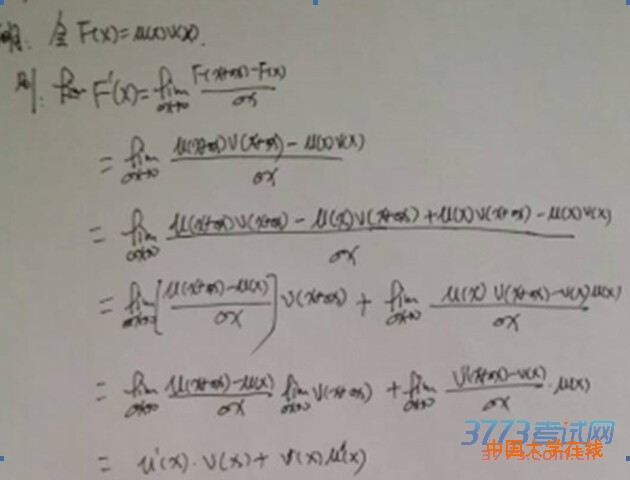 明: 令 F(x)=u(x)v(x).
则: lim F'(x)=lim_{Δx→0} \frac{F(x+Δx)-F(x)}{Δx}
= lim_{Δx→0} \frac{u(x+Δx)v(x+Δx)-u(x)v(x)}{Δx}
= lim_{Δx→0} \frac{u(x+Δx)v(x+Δx)-u(x)v(x+Δx)+u(x)v(x+Δx)-u(x)v(x)}{Δx}
= lim_{Δx→0} [\frac{u(x+Δx)-u(x)}{Δx}] v(x+Δx) + lim_{Δx→0} \frac{u(x) v(x+Δx)-v(x)u(x)}{Δx}
= lim_{Δx→0} \frac{u(x+Δx)-u(x)}{Δx} lim_{Δx→0} v(x+Δx) + lim_{Δx→0} \frac{v(x+Δx)-v(x)}{Δx} · u(x)
= u'(x)·v(x)+v'(x)u(x)
3773考试网
中国大学在线